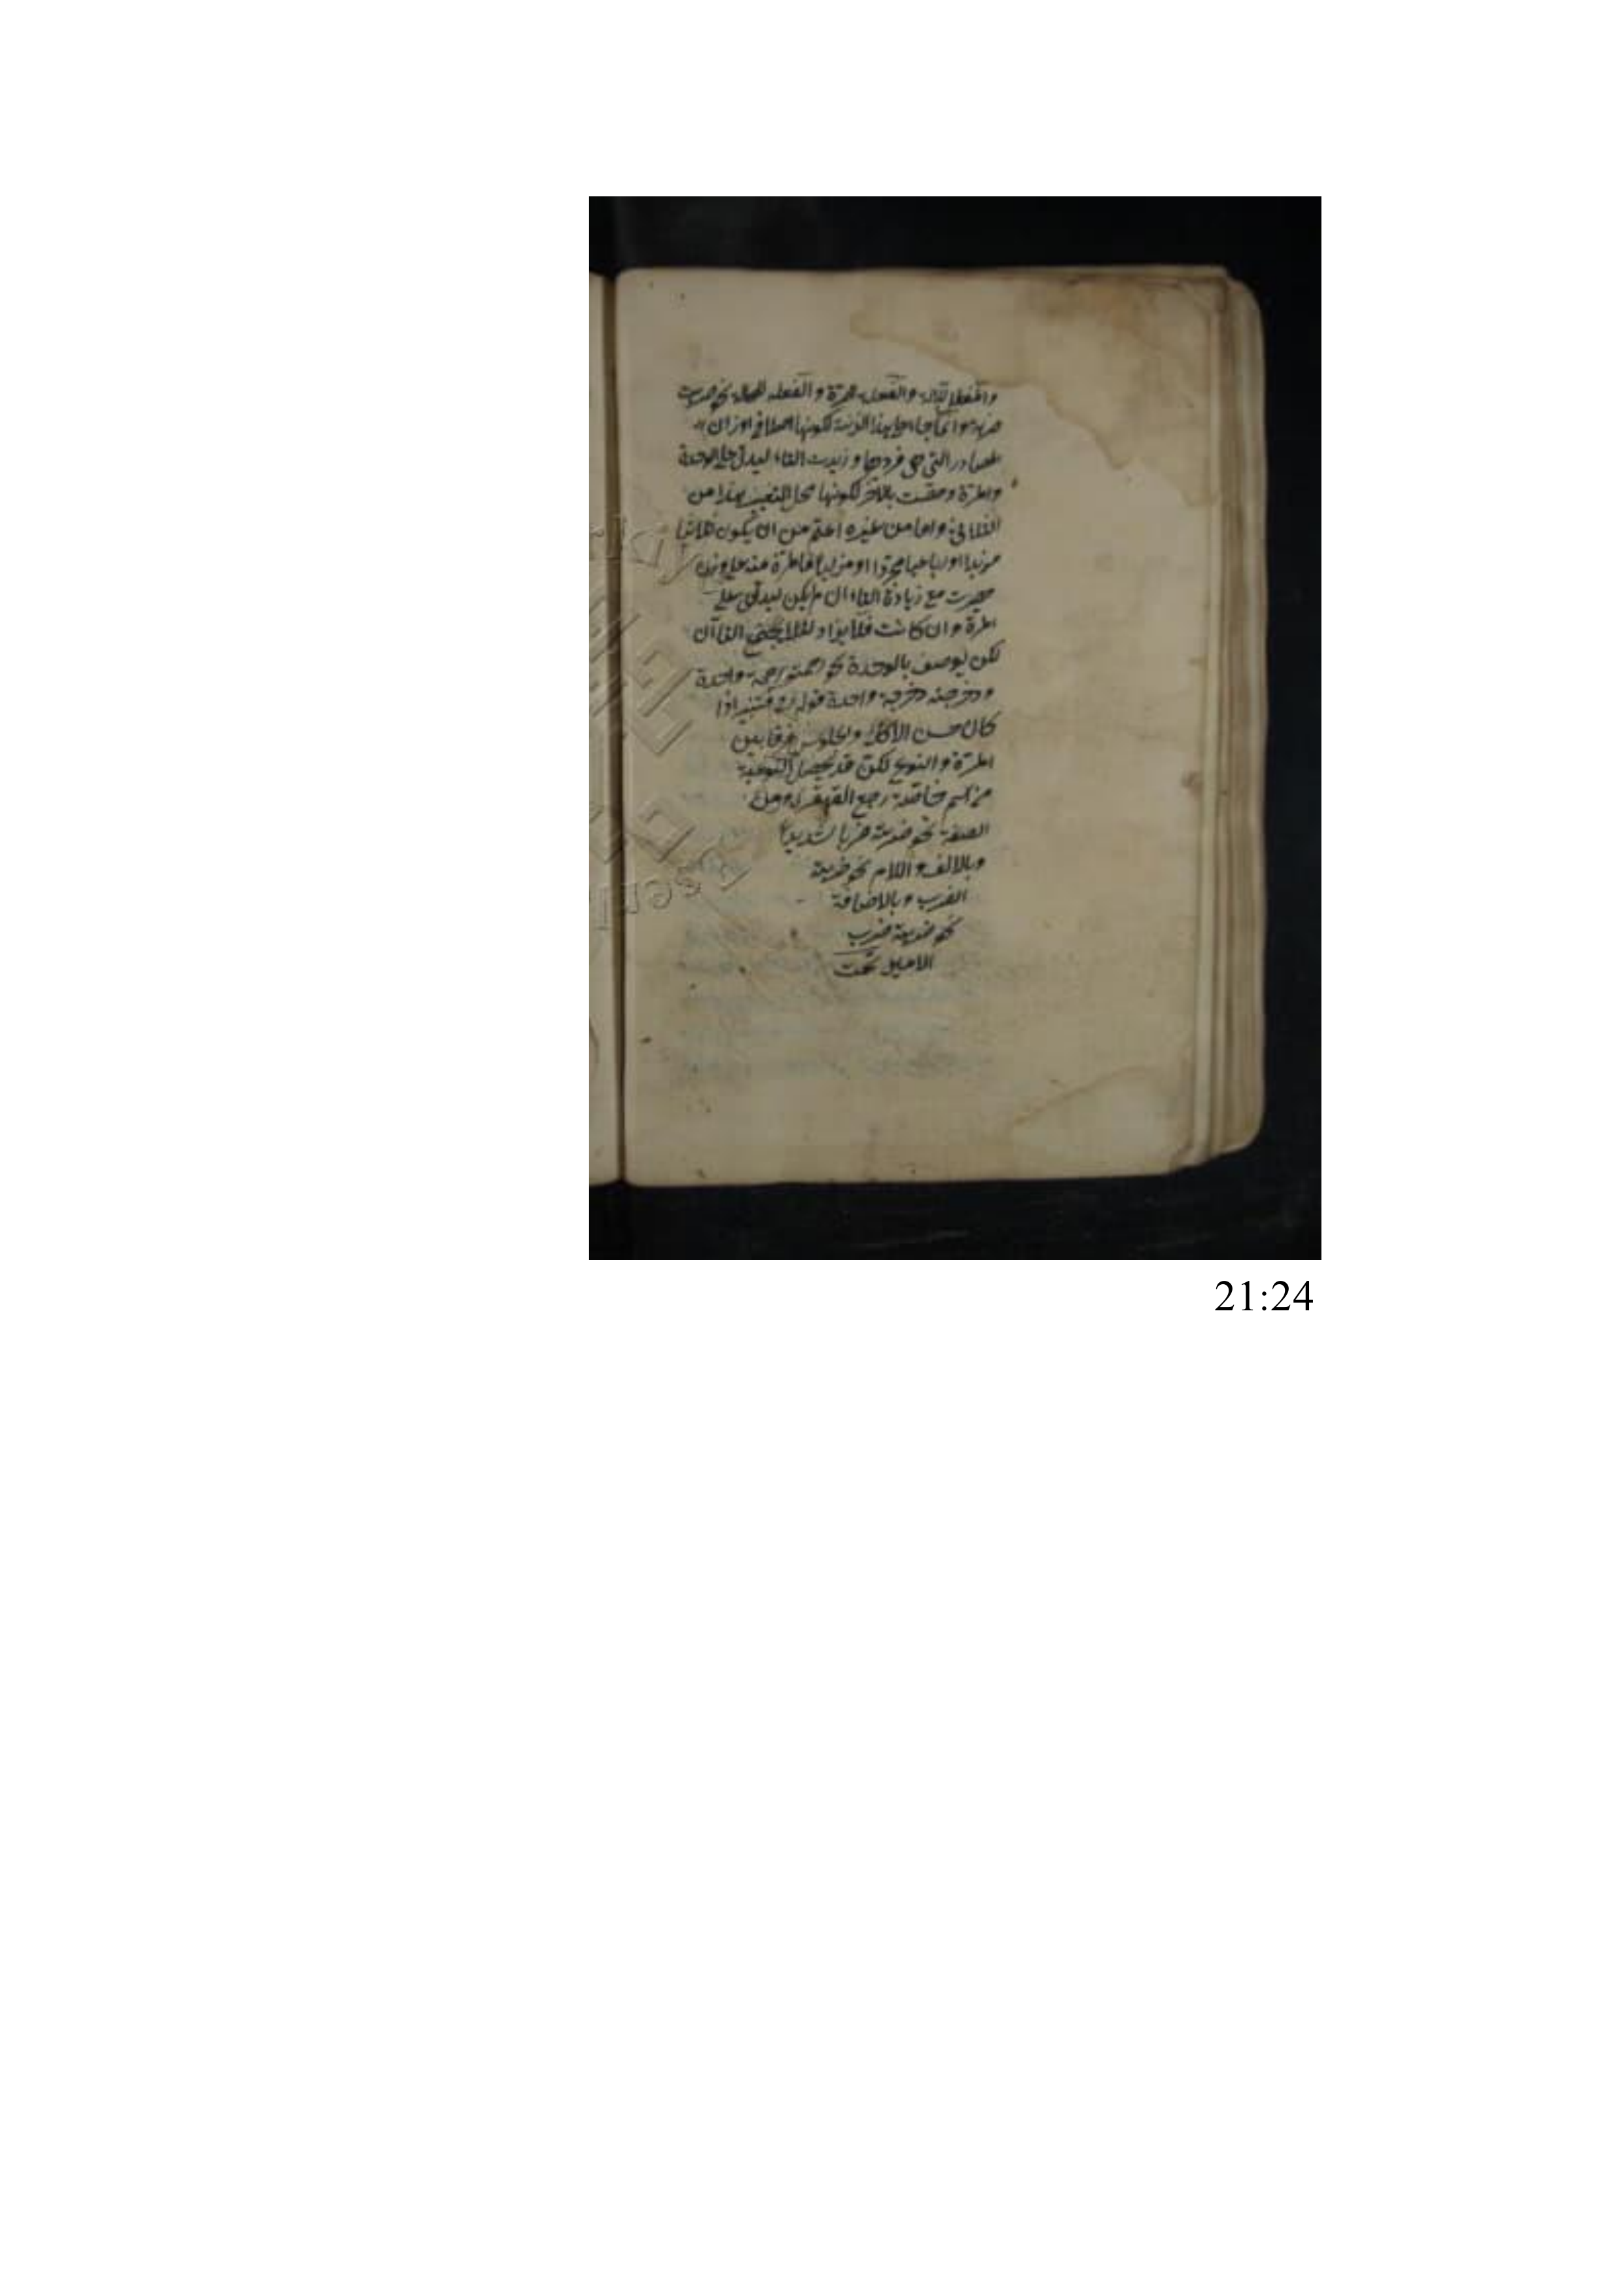 والمفعل للآلة والفعلة للمرة والفعلة للحالة نحو ضربت
ضربة وانما جاء على هذا الوزن لكونها اصلا في اوزان
المصادر التي هي فردها وزيدت التاء ليدل على الوحدة
والمرة وخصت بالآخر لكونها محل التغيير هذا من
الثلاثي واما من غيره اعم من ان يكون ثلاثيا
مزيدا او رباعيا مجردا او مزيدا فالمرة منه على وزن
مصدره مع زيادة التاء ان لم يكن ليدل على
المرة وان كانت فلا يزاد لئلا يجتمع التاآن
لكن يوصف بالوحدة نحو رحمته رحمة واحدة
ودحرجته دحرجة واحدة قوله
كان حسن الاكل والجلوس فرقا بين
المرة والنوع لكن قد يحصل النوعية
من اسم رجع القهقرى ومن
الصفة نحو ضربته ضربا شديدا
وبالالف واللام نحو ضربته
الضرب وبالاضافة
نحو ضربته ضرب
الامير تمت
21:24